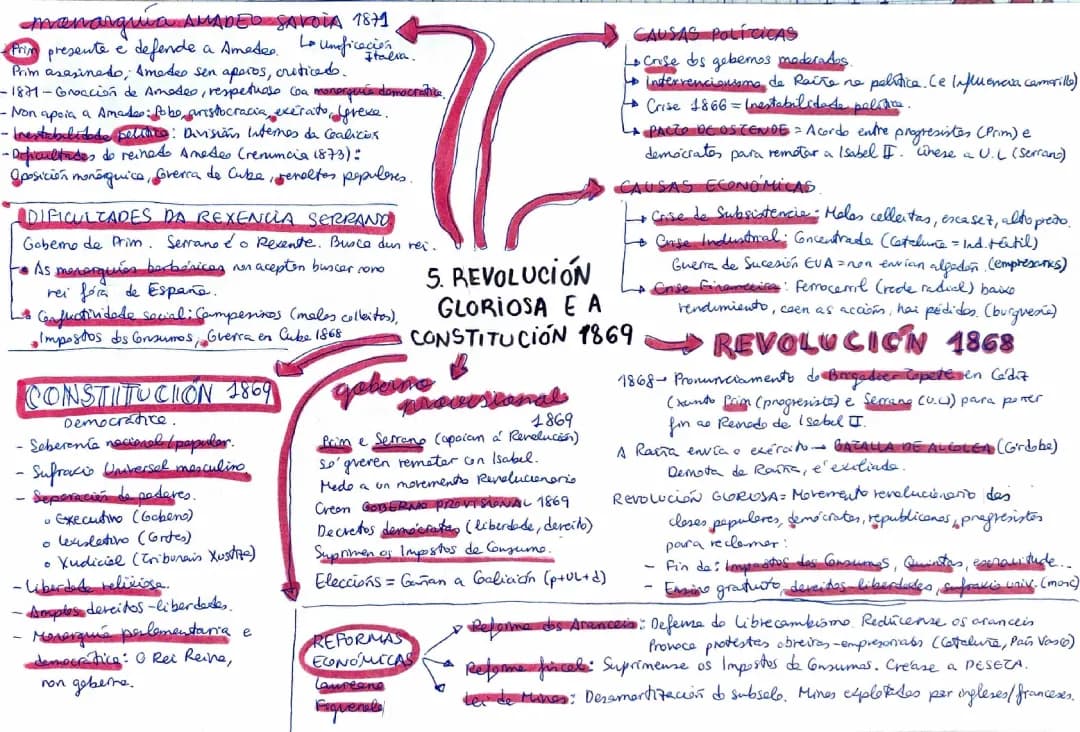 monarquía AMADEO SAVOIA 1871
↳ Unificación Italia.
- Prim presente e defende a Amadeo.
Prim asasinado, Amadeo sen apoios, criticado.
- 1871 - Coroación de Amadeo, respetuoso coa monarquía democrática.
- Non apoia a Amadeo: Pobo, aristocracia, exército, Igrexa.
- Inestabilidade política: Divisións Internas da Coalición
- Dificultades do reinado Amadeo (renuncia 1873):
Oposición monárquica, Guerra de Cuba, revoltas populares.
DIFICULTADES DA REXENCIA SERRANO
Goberno de Prim. Serrano é o Rexente. Busca dun rei.
As monarquías borbónicas non aceptan buscar novo
rei fóra de España.
Conflictividade social: Campesiños (malas colleitas),
Impostos dos Consumos, Guerra en Cuba 1868
5. REVOLUCIÓN
GLORIOSA E A
CONSTITUCIÓN 1869
CAUSAS POLÍTICAS
Crise dos gobernos moderados.
Intervencionismo da Raíña na política. (e Influencia camarilla)
Crise 1866 = Inestabilidade política.
PACTO DE OSTENDE = Acordo entre progresistas (Prim) e
demócratas para rematar a Isabel II. Únese a U.L (Serrano)
CAUSAS ECONÓMICAS
Crise de Subsistencia: Malas colleitas, escasez, alto prezo.
Crise Industrial: Concentrada (Cataluña = Ind. téxtil)
Guerra de Sucesión EUA = non envian algodón. (empresarios)
Crise Financeira: Ferrocarril (rede radial) baixo
rendimento, caen as accións, hai pédidos. (burguesía)
REVOLUCIÓN 1868
1868 → Pronunciamento do Brigadier Topete en Cádiz
(xunto Prim (progresista) e Serrano (U.L) para poñer
fin ao Reinado de Isabel II.
A Raíña envía o exército → BATALLA DE ALCOLEA (Córdoba)
Derrota da Raíña, e' exiliada.
REVOLUCIÓN GLORIOSA = Movemento revolucionario das
clases populares, demócratas, republicanos, progresistas
para reclamar:
- Fin de: Impostos dos Consumos, Quintas, escravitude...
- Ensino gratuito, dereitos-liberdades, sufraxio univ. (masc)
CONSTITUCIÓN 1869
Democrática.
- Soberanía nacional/popular.
- Sufraxio Universal masculino.
- Separación de poderes.
o Executivo (Goberno)
o Lexislativo (Cortes)
o Xudicial (Tribunais Xustiza)
- Liberdade relixiosa.
- Amplos dereitos-liberdades.
- Monarquía parlamentaria e
democrática: O Rei Reina,
non goberna.
goberno
provisional
1869
Prim e Serrano (apoian a' Revolución)
só queren rematar con Isabel.
Medo a un movemento Revolucionario
Crean GOBERNO PROVISIONAL 1869
Decretos demócratas (liberdade, dereito)
Suprimen os Impostos de Consumo.
Eleccións = Gañan a Coalición (p+UL+d)
REFORMAS
ECONÓMICAS
Laureano
Figuerola
Reforma dos Aranceis: Defensa do Librecambismo. Redúcense os aranceis
Provoca protestas obreiras-empresariais (Cataluña, País Vasco)
Reforma fiscal: Suprímense os Impostos de Consumos. Créase a PESETA.
Lei de Minas: Desamortización do subsolo. Minas explotadas por ingleses/franceses.